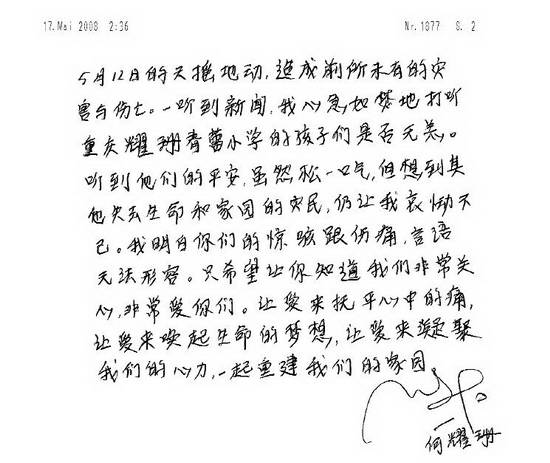 17. Mai 2008 2:36 Nr. 1877 S. 2
5月12日的天摇地动,造成前所未有的灾
害与伤亡。一听到新闻,我心急如焚地打听
重庆耀珊青小学的孩子们是否无恙。
听到他们的平安,虽然松一口气,但想到其
他失去生命和家园的灾民,仍让我哀恸不
已。我明白你们的惊骇跟伤痛,言语
无法形容。只希望让你知道我们非常关
心,非常爱你们。让爱来抚平心中的痛,
让爱来唤起生命的梦想,让爱来凝聚
我们的心力,一起重建我们的家园
何耀珊